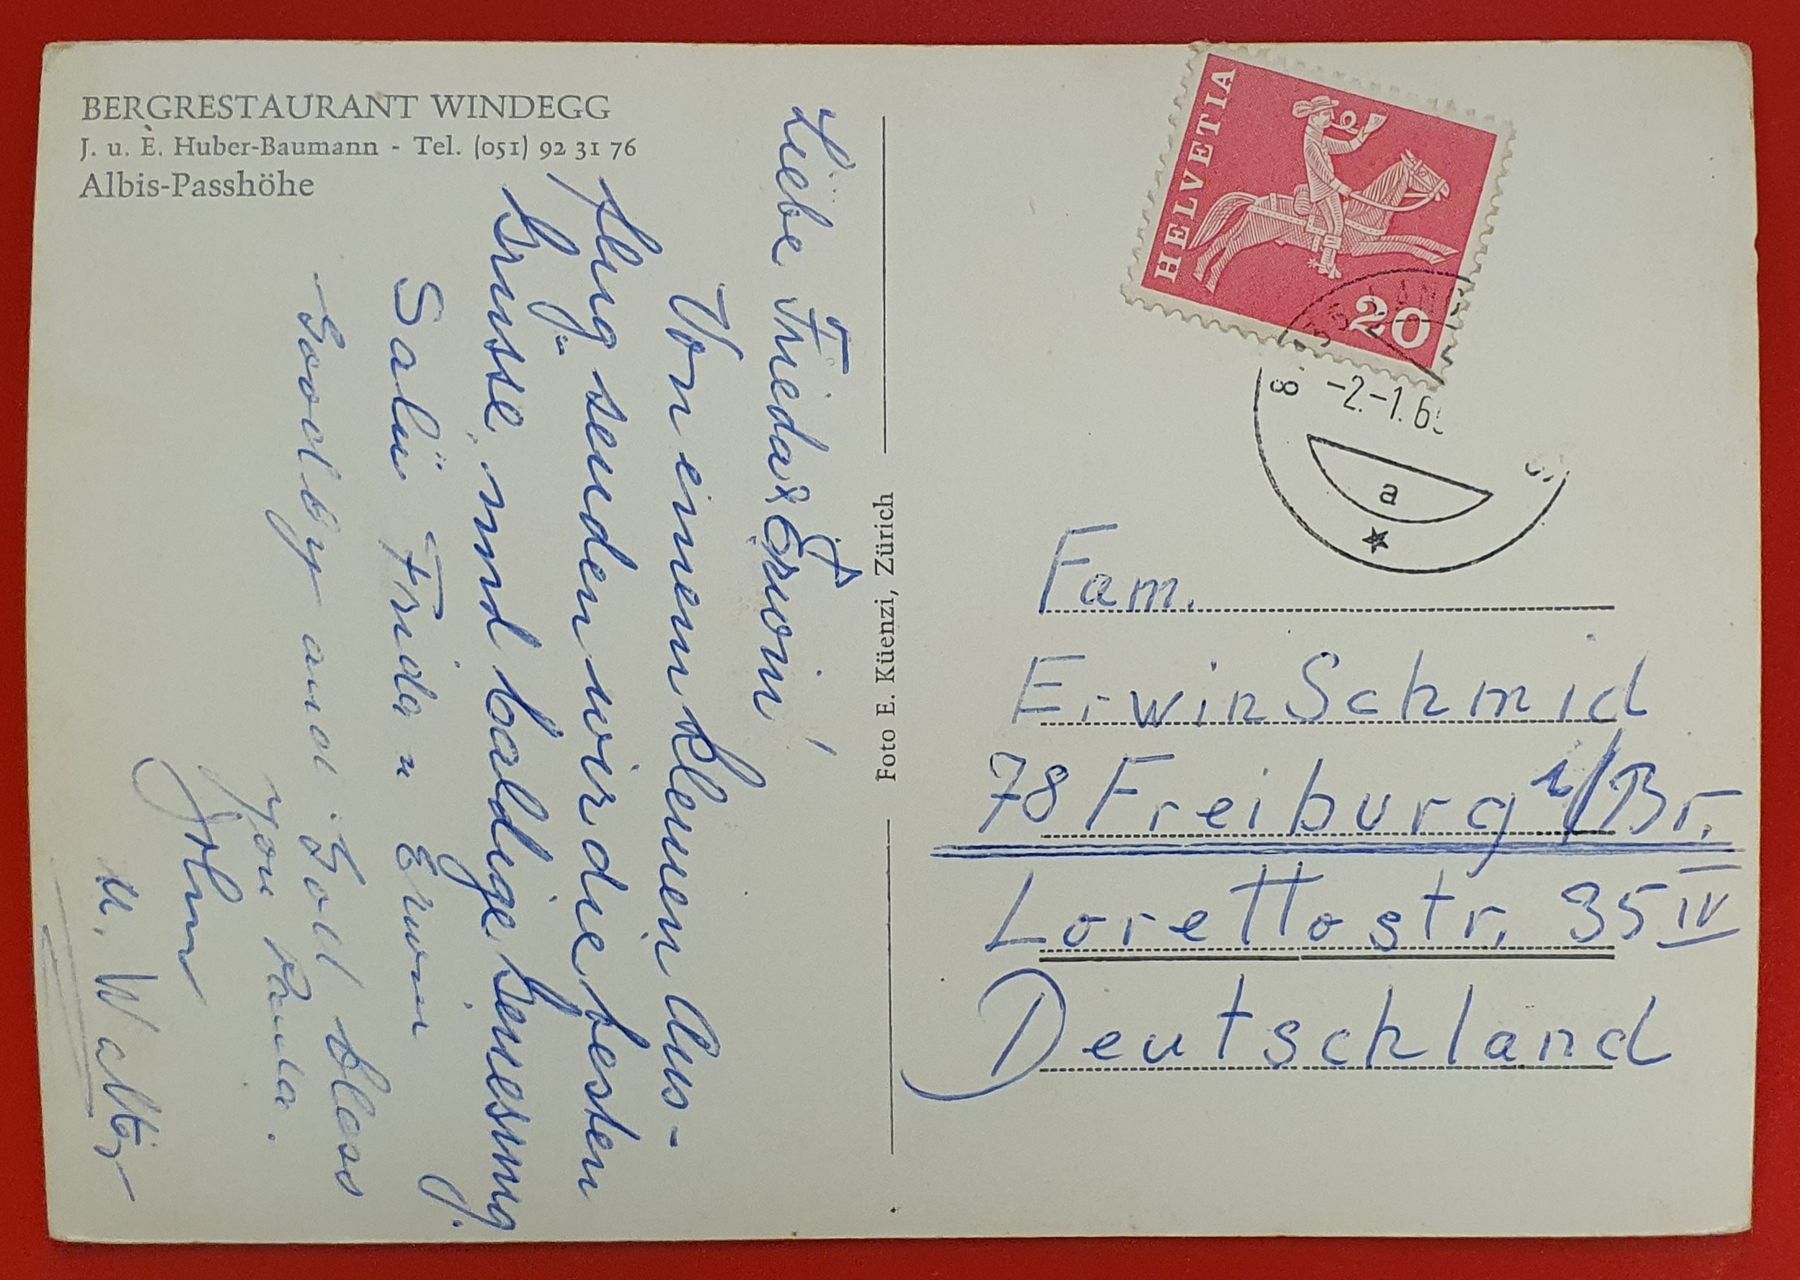 BERGRESTAURANT WINDEGG
J. u. E. Huber-Baumann - Tel. (051) 92 31 76
Albis-Passhöhe
Liebe Frieda & Erwin!
Von einem kleinen Aus-
flug senden wir die besten
Grüsse, und baldige Genesung
Salü Frida u Erwin
Goodby and Goll bless
you Paula.
John
u. Walter
Foto E. Küenzi, Zürich
HELVETIA
20
-2.-1.6
a
Fam.
Erwin Schmid
78 Freiburg i/Br.
Lorettostr. 35 IV
Deutschland